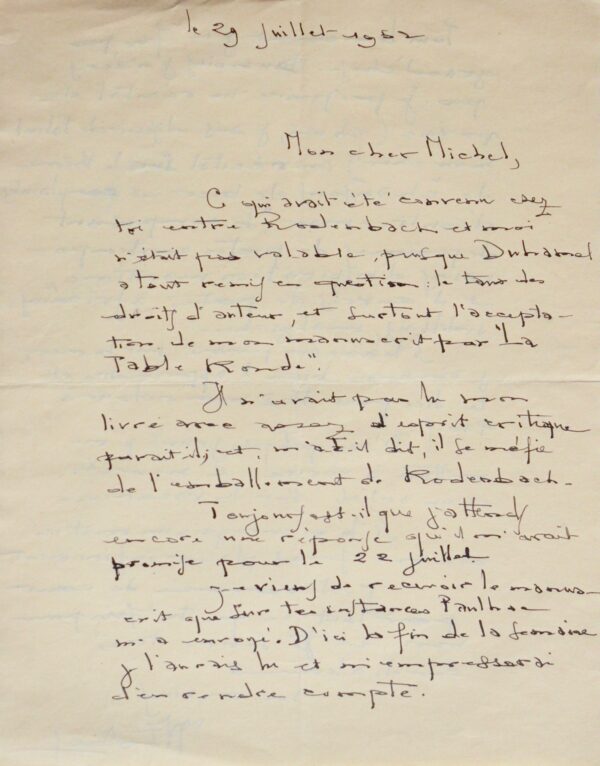 le 29 juillet 1952
Mon cher Michel,
C qui avait été convenu chez
toi entre Rodenbach et moi
n'était pas valable, puisque Duhamel
a tout remis en question : le taux des
droits d'auteur, et surtout l'accepta-
tion de mon manuscrit par "La
Table Ronde".
Il n'avait pas lu mon
livre avec assez d'esprit critique
paraît-il, et, m'a-t-il dit, il se méfie
de l'emballement de Rodenbach -
Toujours est-il que j'attends
encore une réponse qu'il m'avait
promise pour le 22 juillet.
Je viens de recevoir le manus-
crit que sur tes instances Paulhac
m'a envoyé. D'ici la fin de la semaine
j l'aurais lu et m'empresserai
d'en rendre compte.